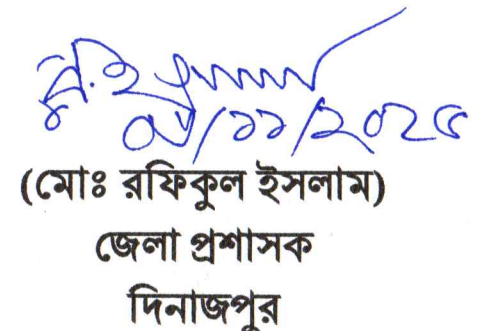 /১১/২০২৫
(মোঃ রফিকুল ইসলাম)
জেলা প্রশাসক
দিনাজপুর